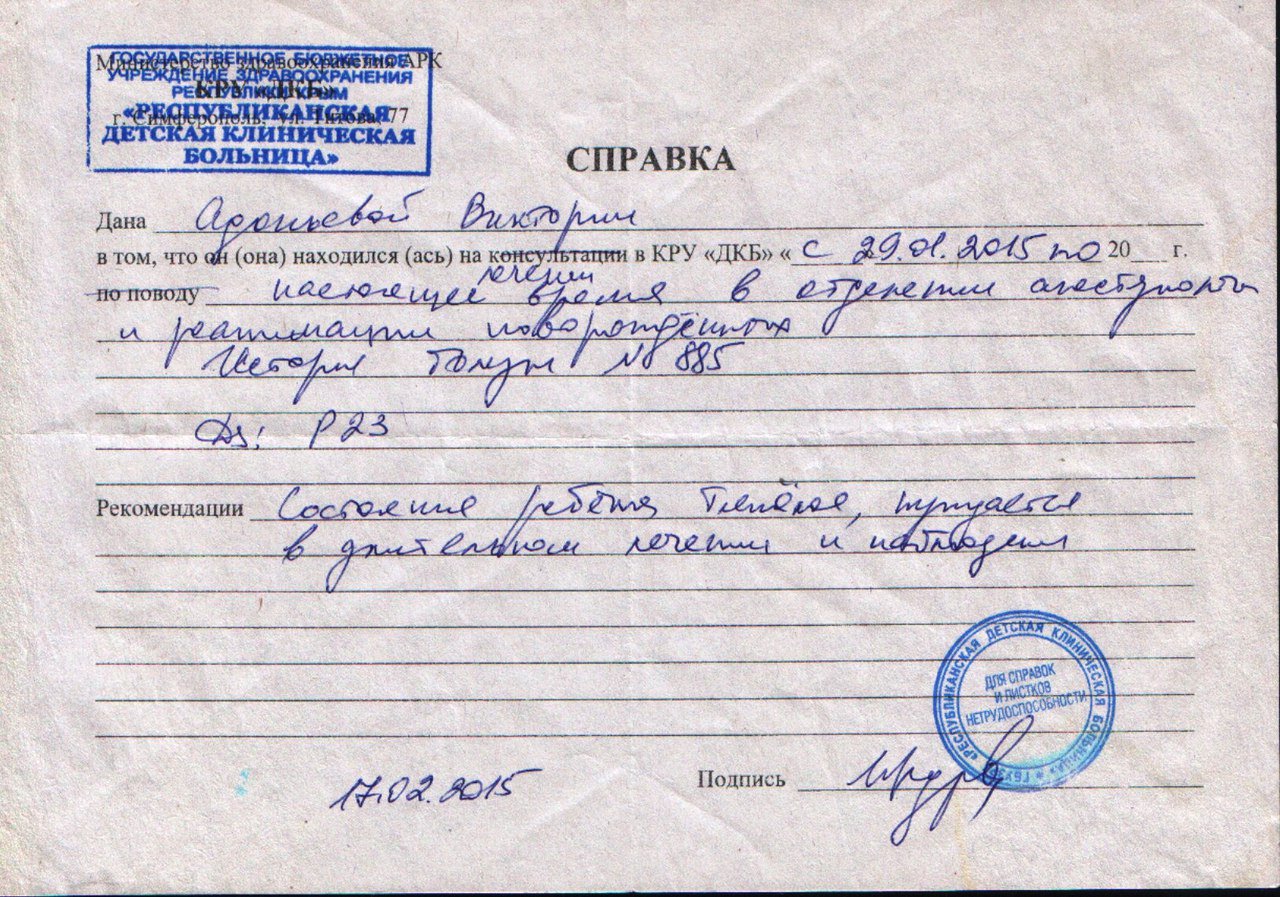 Министерство здравоохранения АРК
КРУ «ДКБ»
г. Симферополь, ул. Титова, 77
ГОСУДАРСТВЕННОЕ БЮДЖЕТНОЕ
УЧРЕЖДЕНИЕ ЗДРАВООХРАНЕНИЯ
РЕСПУБЛИКИ КРЫМ
«РЕСПУБЛИКАНСКАЯ
ДЕТСКАЯ КЛИНИЧЕСКАЯ
БОЛЬНИЦА»
СПРАВКА
Дана Адоньевой Виктории
в том, что он (она) находился (ась) на консультации в КРУ «ДКБ» « с 29.01.2015 по 20 г.
лечении
по поводу настоящее время в отделении анестезиологии
и реанимации новорождённых
История болезни № 885
Дз: Р 23
Рекомендации Состояние ребёнка тяжёлое, нуждается
в длительном лечении и наблюдении
«РЕСПУБЛИКАНСКАЯ ДЕТСКАЯ КЛИНИЧЕСКАЯ БОЛЬНИЦА» * ГБУЗ
ДЛЯ СПРАВОК
И ЛИСТКОВ
НЕТРУДОСПОСОБНОСТИ
17.02.2015 Подпись